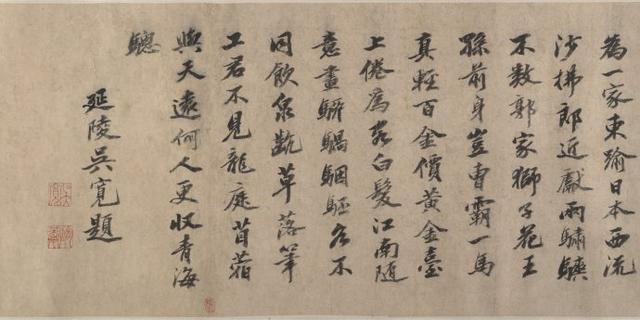 為一家東踰日本西流
沙拂郎近獻兩驌
不数郭家獅子花王
孫前身豈曹霸一馬
真輕百金價黄金臺
上倦為客白髮江南随
意畫騂騧駰駓各不
同飲泉齕草落筆
工君不見龍庭苜蓿
與天遠何人更収青海
驄
延陵吳寬題